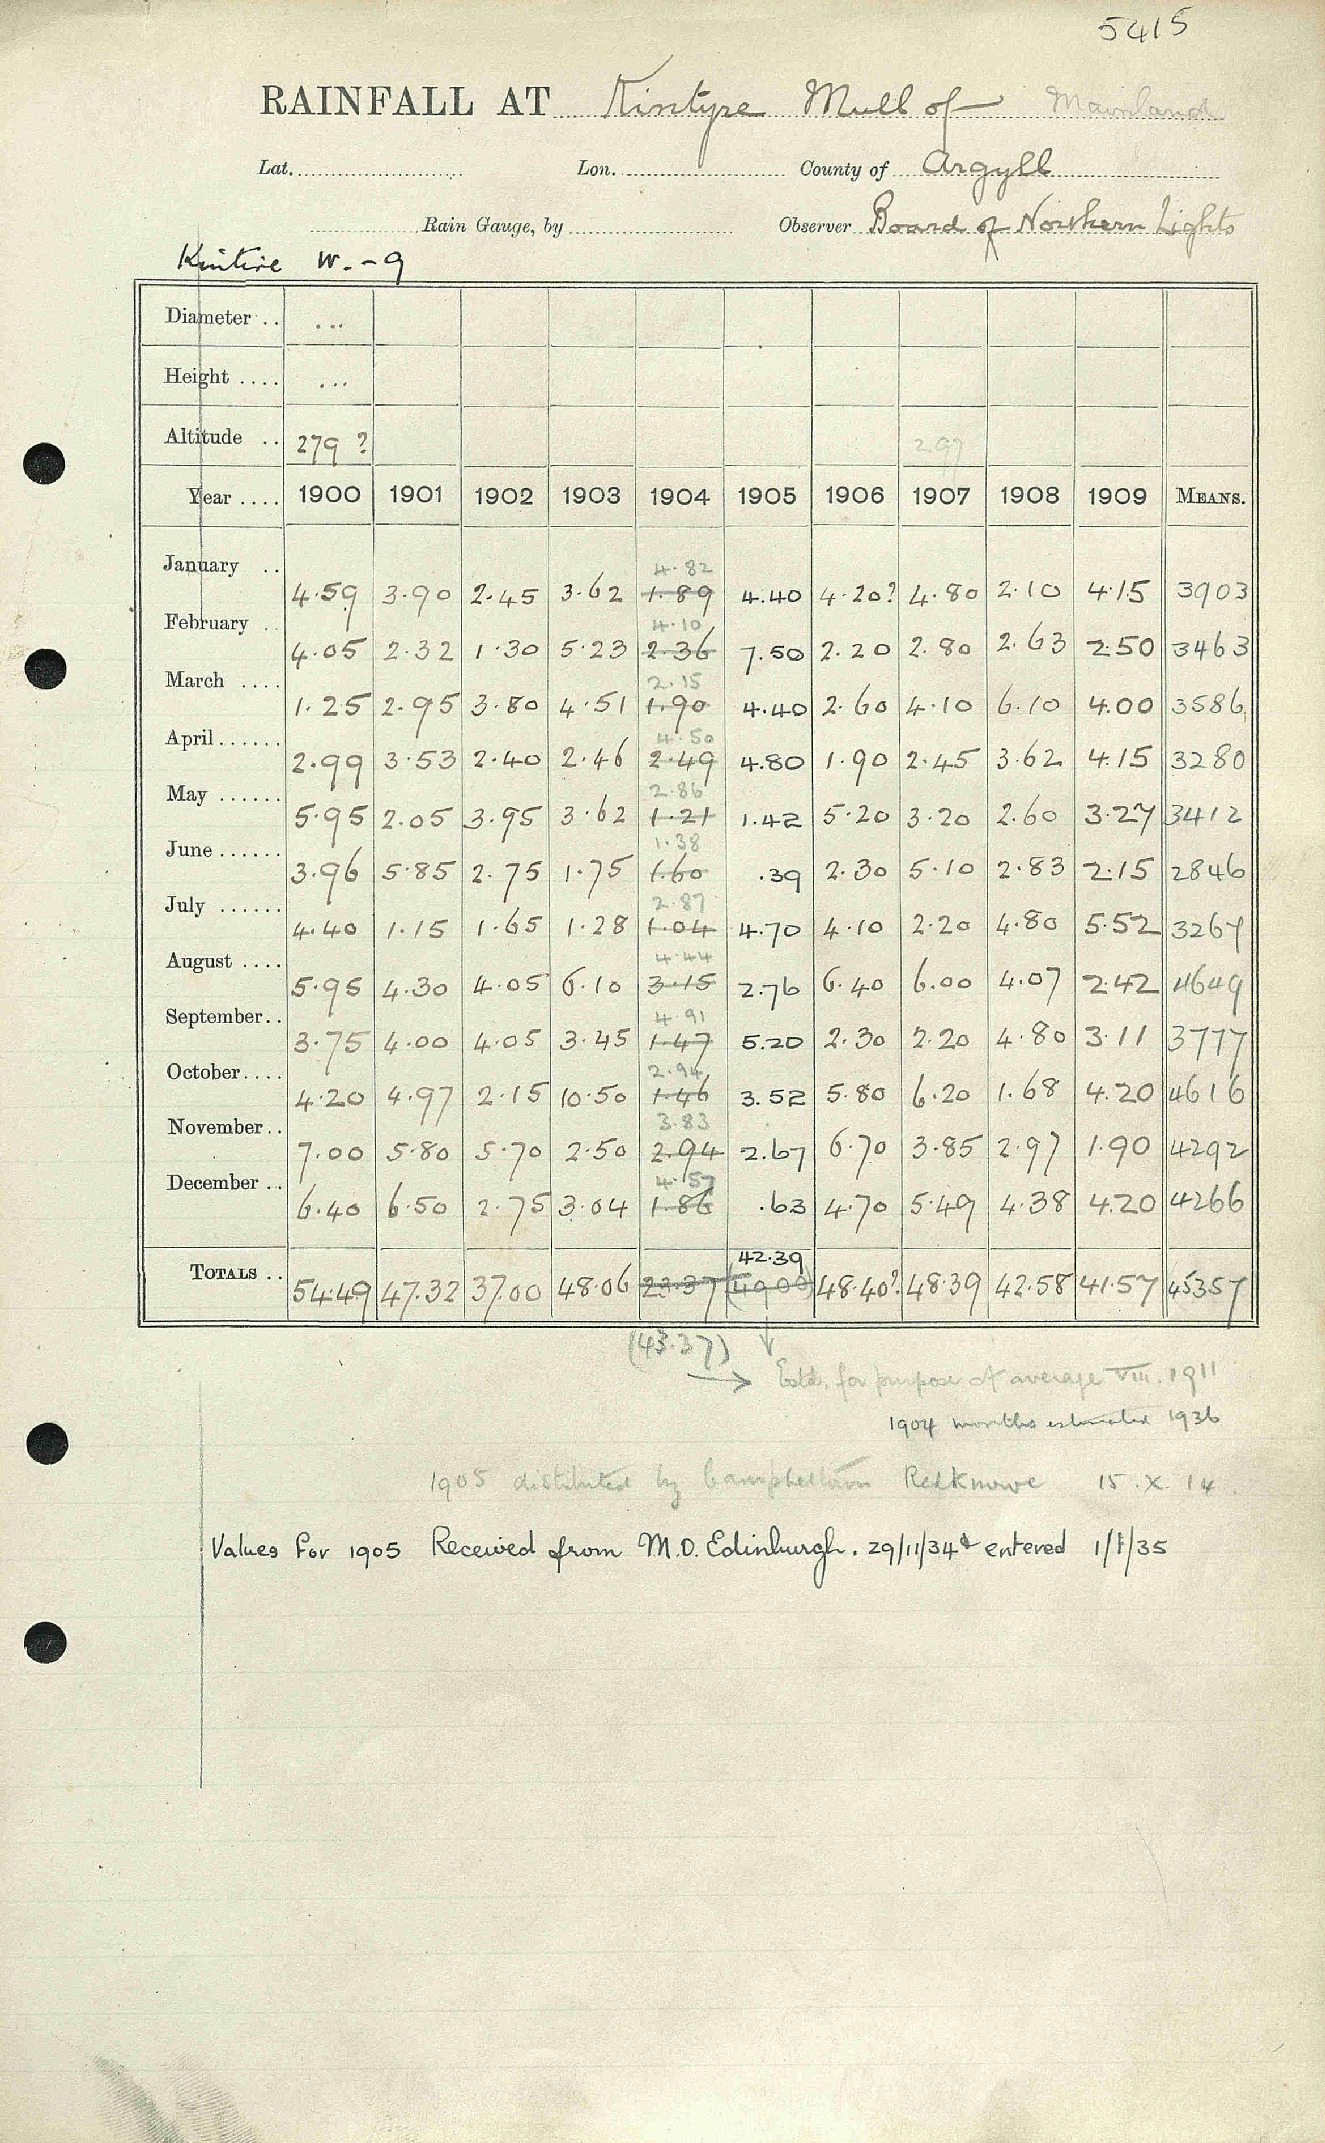 5415
RAINFALL AT Kintyre Mull of Mainland
Lat. Lon. County of Argyll
Rain Gauge, by Observer Board of Northern Lights
Kintire W. - 9
Diameter .. ...
Height .... ...
Altitude .. 279 ? 297
Year .... 1900 1901 1902 1903 1904 1905 1906 1907 1908 1909 MEANS.
4.82
January .. 4.59 3.90 2.45 3.62 1.89 4.40 4.20? 4.80 2.10 4.15 3903
4.10
February .. 4.05 2.32 1.30 5.23 2.36 7.50 2.20 2.80 2.63 2.50 3463
2.15
March .... 1.25 2.95 3.80 4.51 1.90 4.40 2.60 4.10 6.10 4.00 3586
4.50
April...... 2.99 3.53 2.40 2.46 2.49 4.80 1.90 2.45 3.62 4.15 3280
2.86
May ...... 5.95 2.05 3.95 3.62 1.21 1.42 5.20 3.20 2.60 3.27 3412
1.38
June ...... 3.96 5.85 2.75 1.75 1.60 .39 2.30 5.10 2.83 2.15 2846
2.87
July ...... 4.40 1.15 1.65 1.28 1.04 4.70 4.10 2.20 4.80 5.52 3267
4.44
August .... 5.95 4.30 4.05 6.10 3.15 2.76 6.40 6.00 4.07 2.42 4649
4.91
September.. 3.75 4.00 4.05 3.45 1.47 5.20 2.30 2.20 4.80 3.11 3777
2.94
October.... 4.20 4.97 2.15 10.50 1.46 3.52 5.80 6.20 1.68 4.20 4616
3.83
November.. 7.00 5.80 5.70 2.50 2.94 2.67 6.70 3.85 2.97 1.90 4292
4.57
December .. 6.40 6.50 2.75 3.04 1.86 .63 4.70 5.49 4.38 4.20 4266
42.39
TOTALS .. 54.49 47.32 37.00 48.06 23.37 (49.00) 48.40? 48.39 42.58 41.57 45357
(43.37)
→ Estd. for purpose of average VIII. 1911
1904 months estimated 1936
1905 distributed by Campbeltown Redknowe 15. X. 14.
Values For 1905 Received from M.O. Edinburgh. 29/11/34 & entered 1/1/35